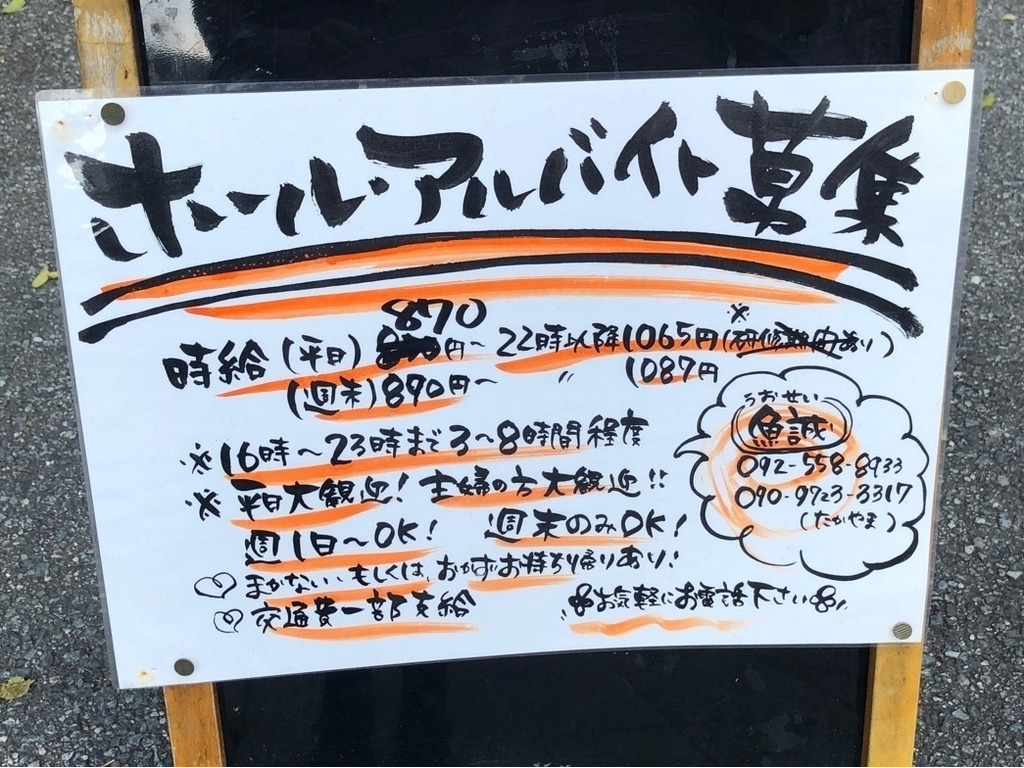 ホール・アルバイト募集
時給(平日)870円〜22時以降1065円(※研修期間あり)
(週末)890円〜 〃 1087円
※16時〜23時まで3〜8時間程度
※平日大観迎!主婦の方大観迎!!
週1日〜OK! 週末のみOK!
まかない、もしくは、おかずお持ち帰りあり!
交通費一部支給
お気軽にお電話下さい
うおせい
魚誠
092-558-8933
090-9723-3317
(たかやま)